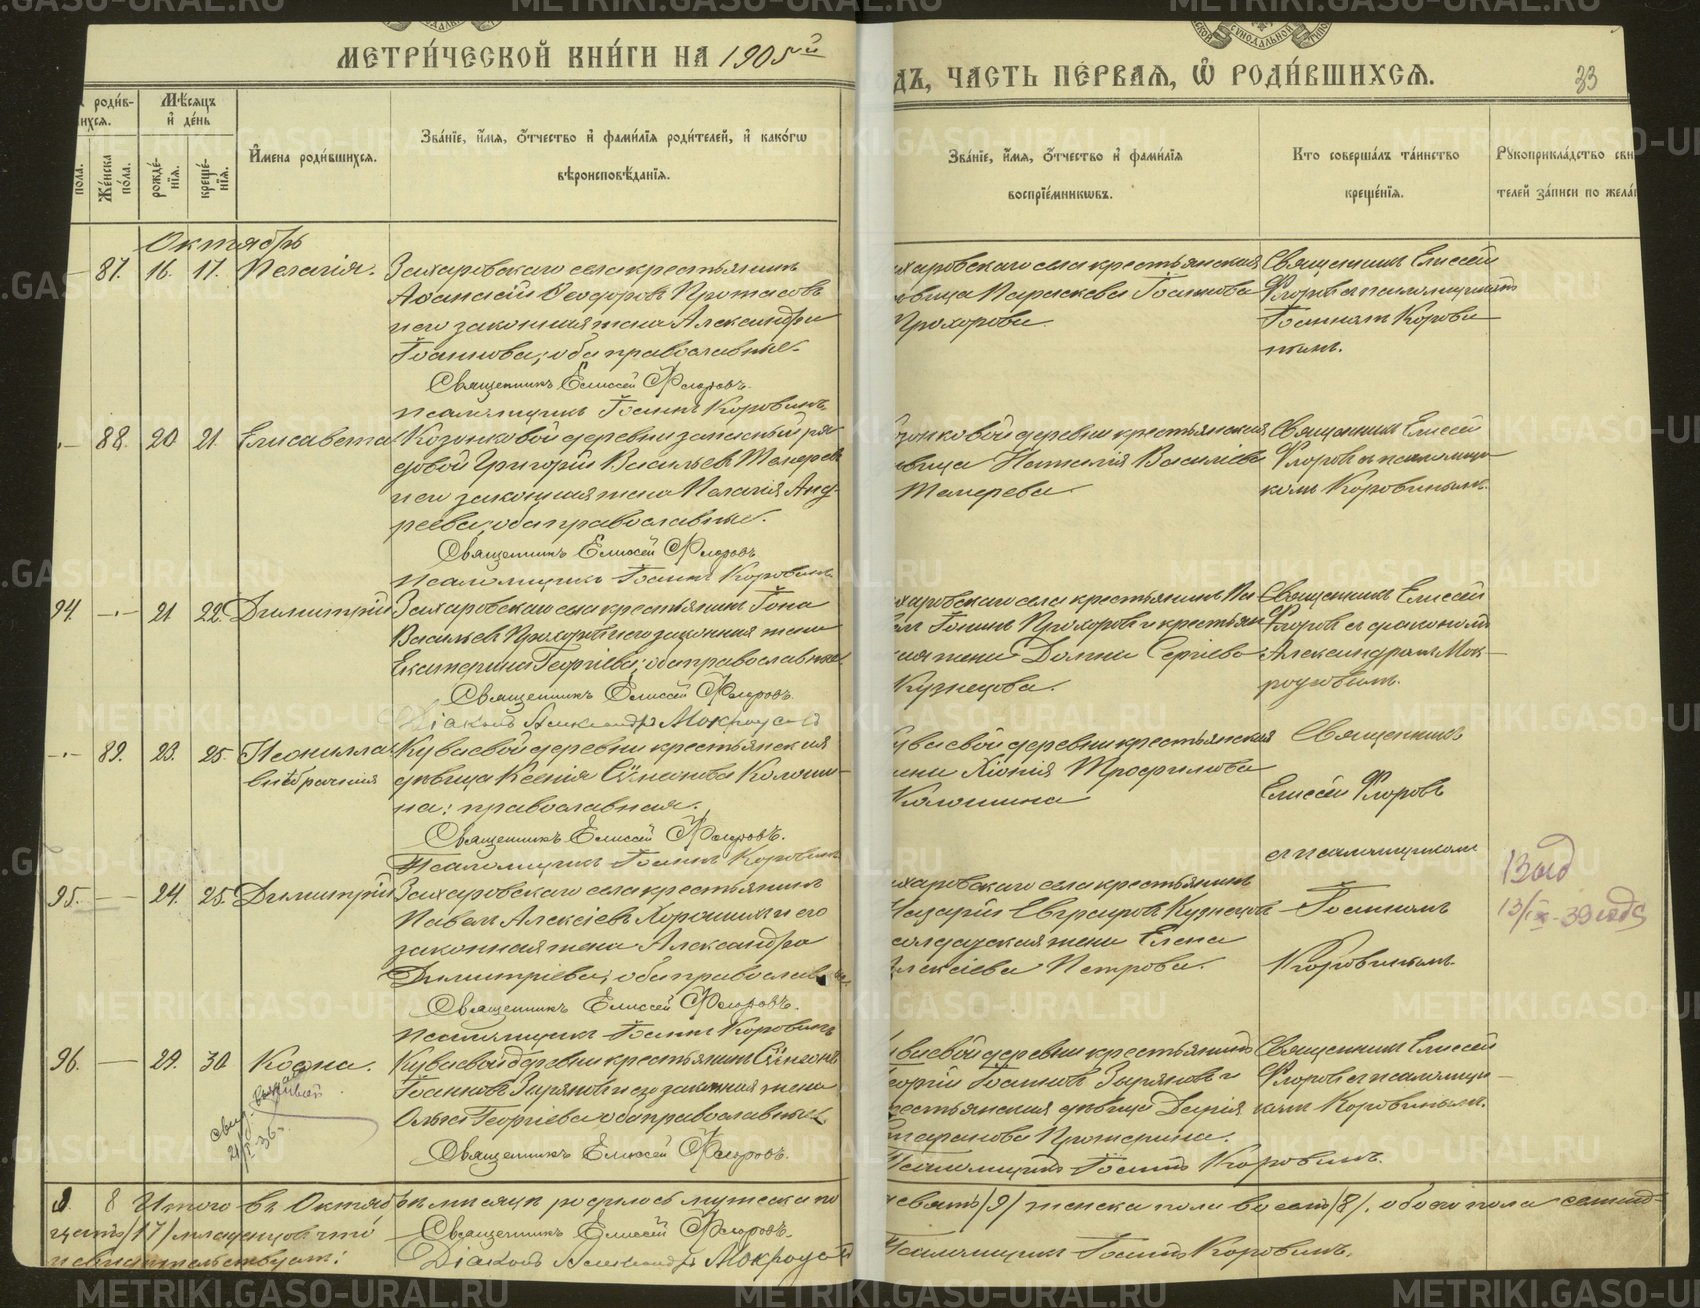 МЕТРИ́ЧЕСКОЙ КНИ́ГИ НА 1905й
ДЪ, ЧАСТЬ ПЕ́РВАѦ, Ѽ РОДИ́ВШИХСѦ.
33
роди́в-
ихсѧ.
пола.
Же́нска по́ла.
Мѣ́сѧцъ и҆ де́нь
рожде́-нїѧ.
креще́-нїѧ.
И҆мена роди́вшихсѧ.
Зва́нїе, и҆́мѧ, ѻ҆́тчество и҆ фами́лїѧ роди́телей, и҆ како́гѡ
вѣроисповѣ́данїѧ.
Зва́нїе, и҆́мѧ, ѻ҆́тчество и҆ фами́лїѧ
воспрїе́мникѡвъ.
Кто соверша́лъ та́инство
креще́нїѧ.
Рꙋкоприкла́дство сви
телей за́писи по жела́
Октябрь
87. 16. 17. Пелагія.
Захаровскаго села крестьянинъ
Аѳанасій Ѳеодоровъ Протасовъ
и его законная жена Александра
Іоаннова; оба православные.
Священникъ Елисей Флоровъ.
Псаломщикъ Іоаннъ Коровинъ
харовскаго села крестьянская
вица Параскева Іоаннова
Прохорова
Священникъ Елисей
Флоровъ съ псаломщикомъ
Іоанномъ Корови
нымъ.
88. 20 21. Елисавета
Козонковой деревни запасный ря
довой Григорій Васильевъ
и его законная жена Пелагія Анд-
реева; оба православные.
Священникъ Елисей Флоровъ
Псаломщикъ Іоаннъ Коровинъ.
зонковой деревни крестьянская
вица Наталія Василіева
Священникъ Елисей
Флоровъ съ псаломщи
комъ Коровинымъ.
94. 21 22. Димитрій
Захаровскаго села крестьянинъ Іона
Васильевъ Прохоровъ и его законная жена
Екатерина Георгіева; оба православные.
Священникъ Елисей Флоровъ.
Діаконъ Александръ Мокроусовъ
харовскаго села крестьянинъ Па
велъ Іонинъ Прохоровъ и крестьян
ская жена Домна Сергіева
Кузнецова.
Священникъ Елисей
Флоровъ съ діакономъ
Александромъ Мок-
роусовымъ.
89. 23. 25. Неонилла
внѣбрачная
Куваевой деревни крестьянская
дѣвица Ксенія Колоши-
на; православная.
Священникъ Елисей Флоровъ.
Псаломщикъ Іоаннъ Коровинъ
уваевой деревни крестьянская
жена Хіонія Трофимова
Колошина
Священникъ
Елисей Флоровъ
съ псаломщикомъ
Іоанномъ
Коровинымъ.
95. 24. 25. Димитрій
Захаровскаго села крестьянинъ
Павелъ Алексіевъ Хорошихъ и его
законная жена Александра
Димитріева; оба православные.
Священникъ Елисей Флоровъ.
Псаломщикъ Іоаннъ Коровинъ
харовскаго села крестьянинъ
Назарій Евграфовъ Кузнецовъ
солдатская жена Елена
Алексіева Петрова.
13/IX-39 года
96. 29. 30 Косма.
Куваевой деревни крестьянинъ Сѵмеонъ
Іоанновъ Заряновъ и его законная жена
Ольга Георгіева; оба православные
Священникъ Елисей Флоровъ.
уваевой деревни крестьянинъ
Георгій Іоанновъ Заряновъ и
крестьянская дѣвица Дарія
Псаломщикъ Іоаннъ Коровинъ.
Священникъ Елисей
Флоровъ съ псаломщи-
комъ Коровинымъ.
9 8 Итого въ Октябрѣ мѣсяцѣ родилось мужеска по
девять /9/ женска пола восемь /8/, обоего пола семнад-
цать /17/ младенцовъ что
и свидѣтельствуемъ:
Священникъ Елисей Флоровъ.
Діаконъ Александръ Мокроусовъ
Псаломщикъ Іоаннъ Коровинъ.
METRIKI.GASO-URAL.RU